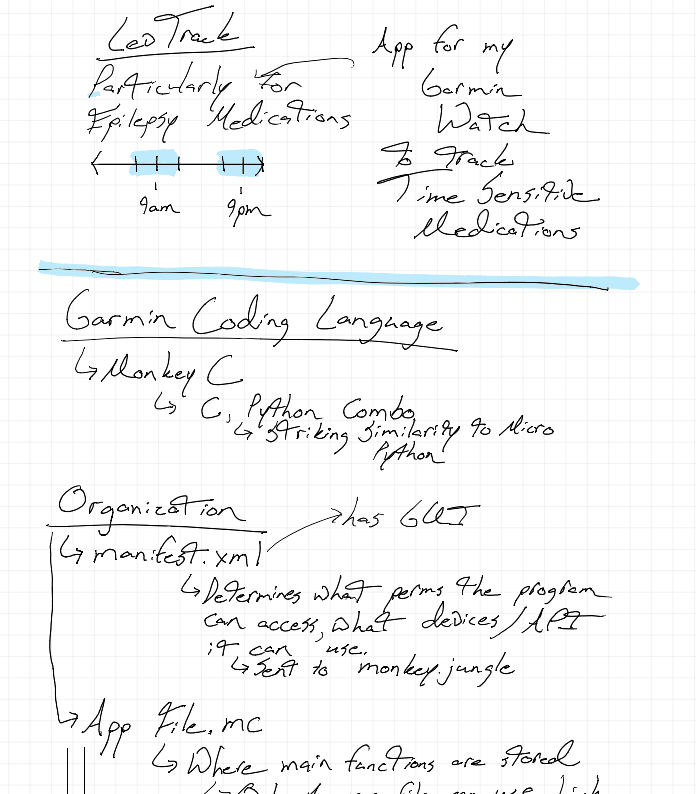 LevTrack
Particularly for
Epilepsy Medications
9am
9pm
App for my
Garmin
Watch
to Track
Time Sensitive
Medications
Garmin Coding Language
↳ Monkey C
↳ C, Python Combo
↳ Striking Similarity to Micro
Python
Organization
↳ manifest.xml
has GUI
↳ Determines what perms the program
can access, what devices/API
it can use.
↳ Sent to monkey.jungle
↳ App File.mc
↳ Where main functions are stored